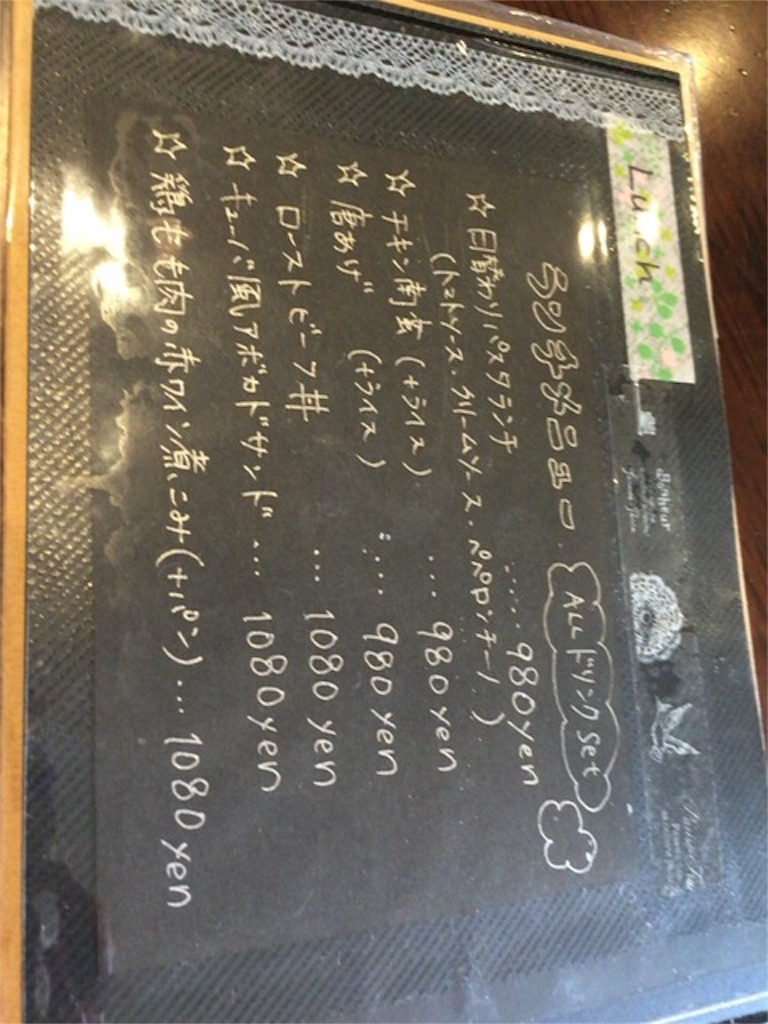 Lunch
Bonheur
ランチメニュー ALLドリンクset
☆日替わりパスタランチ ..... 980yen
(トマトソース・クリームソース・ペペロンチーノ)
☆チキン南蛮 (+ライス) ... 980yen
☆唐あげ (+ライス) ..... 980yen
☆ローストビーフ丼 ... 1080yen
☆キューバ風アボカドサンド ... 1080yen
☆鶏もも肉の赤ワイン煮こみ(+パン) ... 1080yen